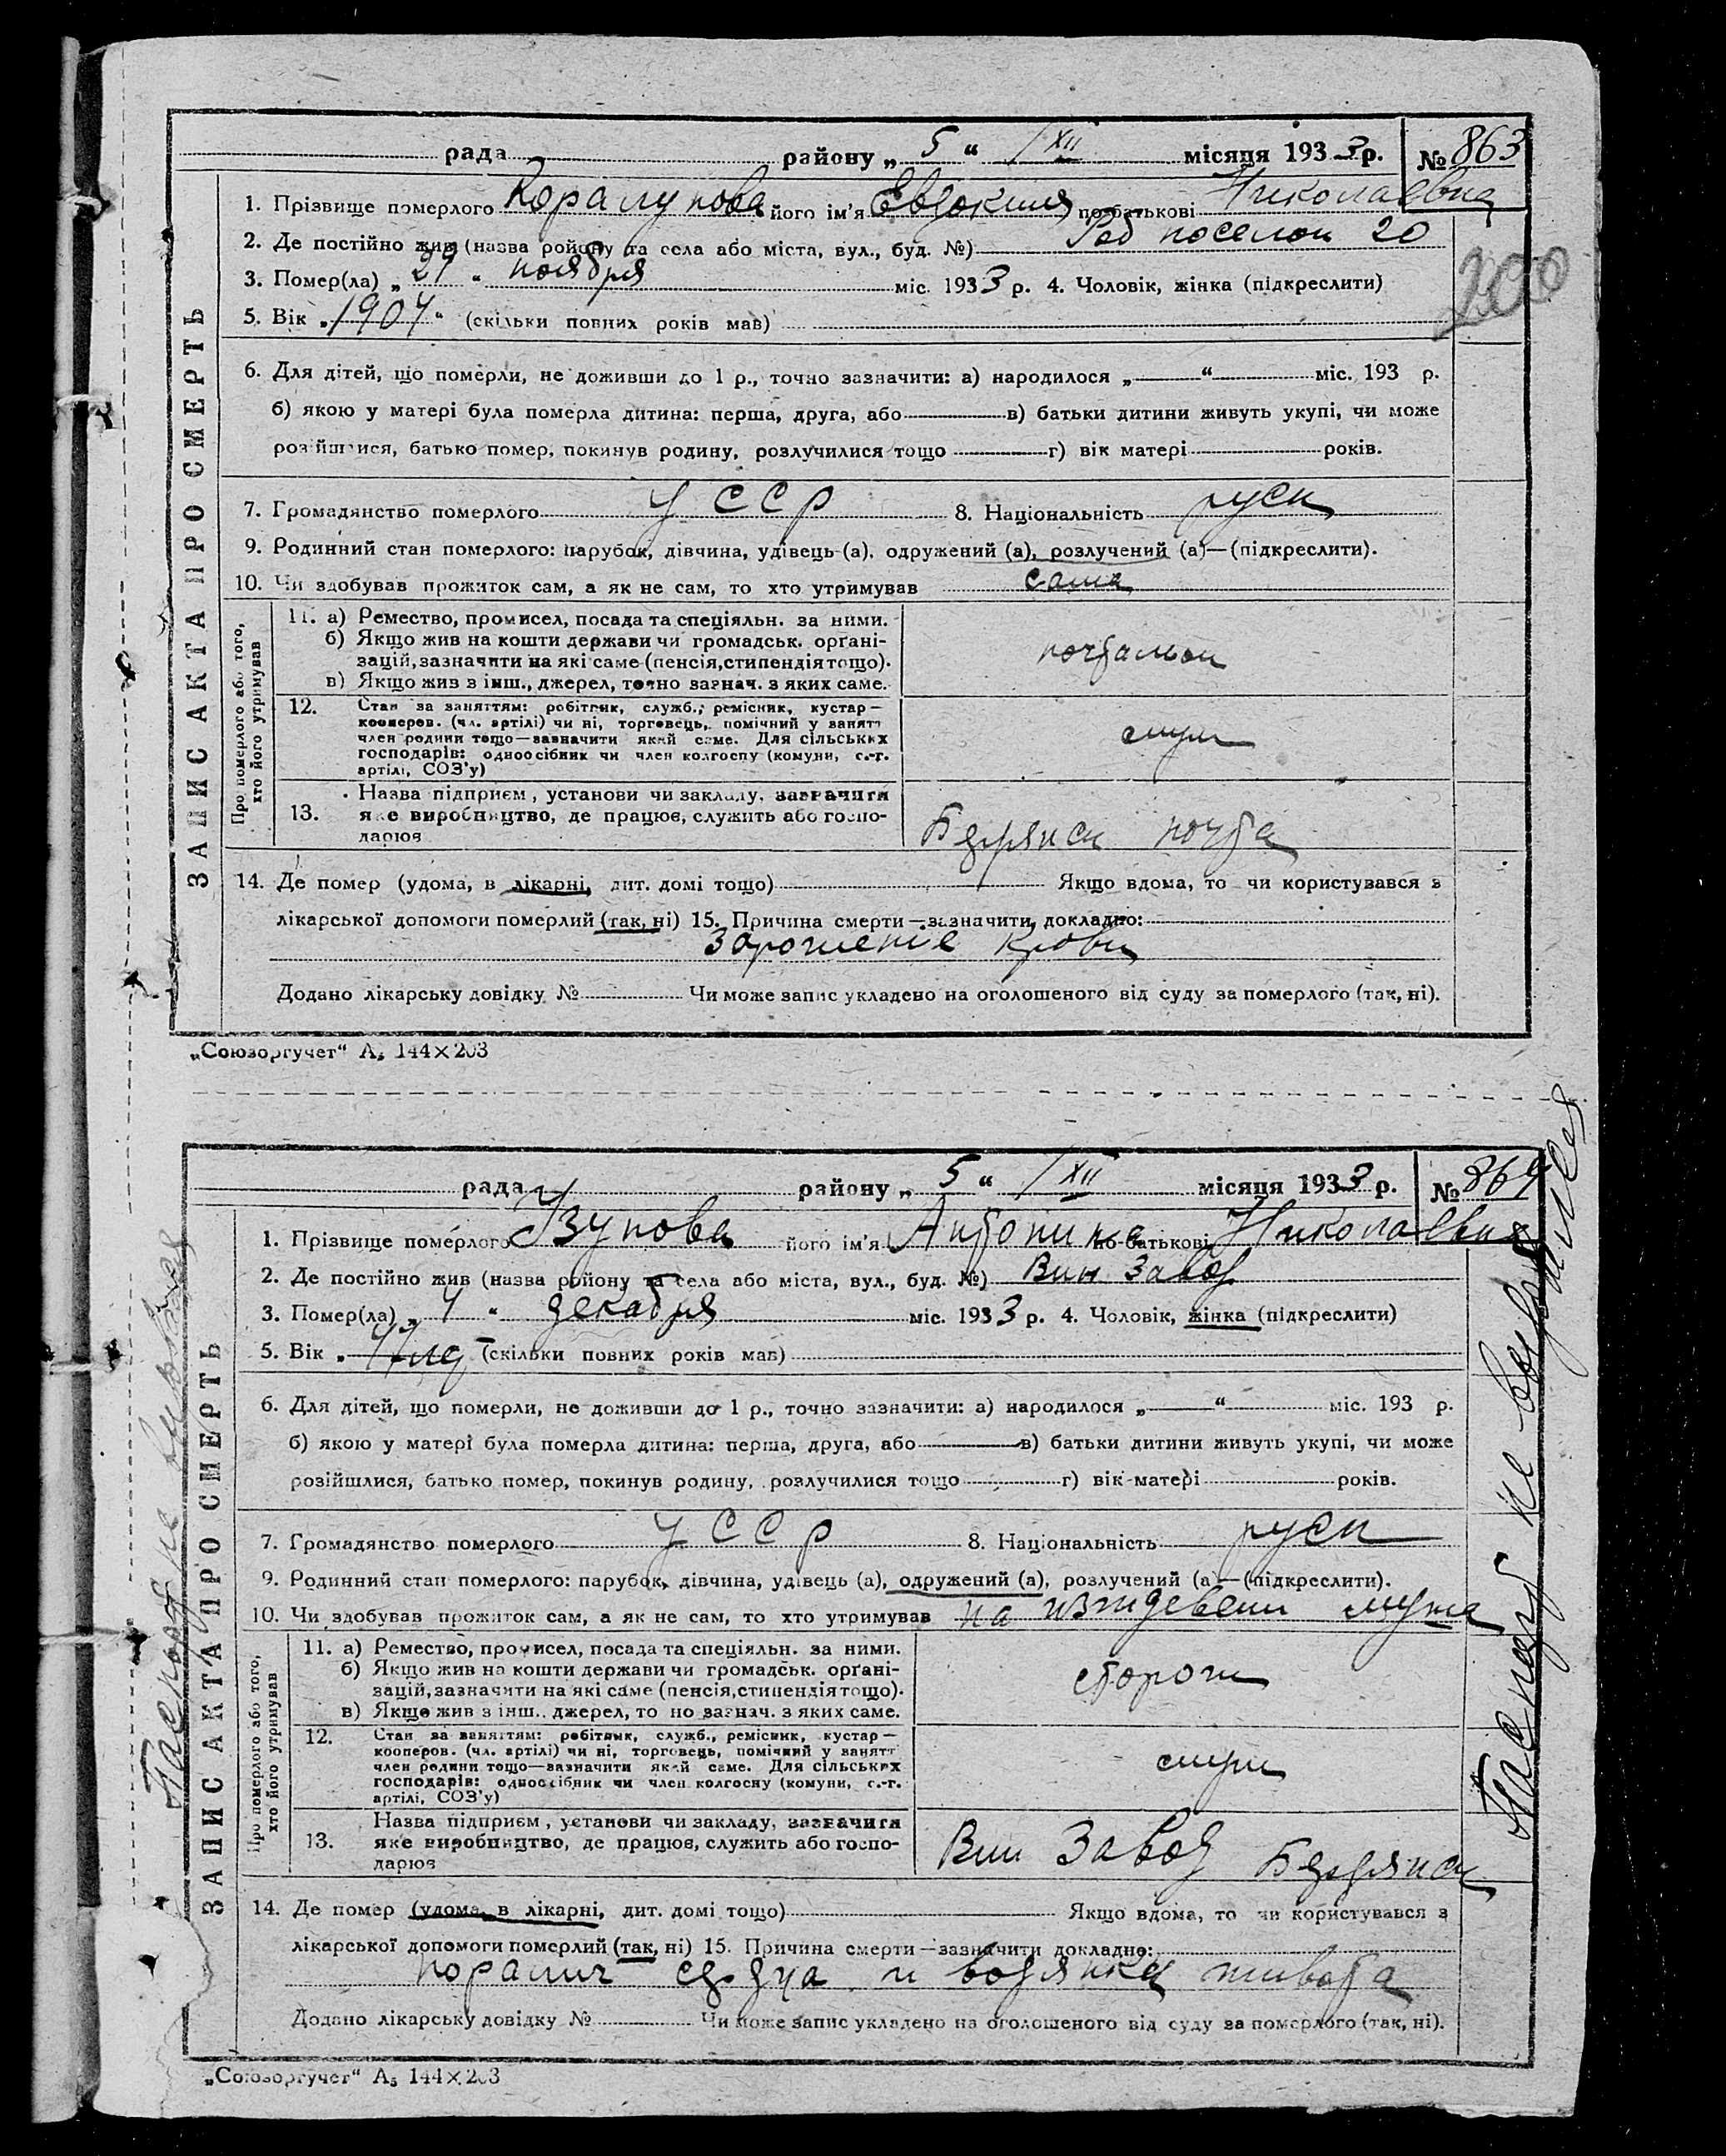 рада району „ 5 “ XII місяця 1933 р. № 863
1. Прізвище померлого його ім'я Евдокия по-батькові Николаевна
2. Де постійно жив (назва району та села або міста, вул., буд. №) Раб поселок 20
3. Помер(ла) „ 29 “ ноября міс. 1933 р. 4. Чоловік, жінка (підкреслити)
5. Вік „ 1904 “ (скільки повних років мав)
200
6. Для дітей, що померли, не доживши до 1 р., точно зазначити: а) народилося „ “ міс. 193 р.
б) якою у матері була померла дитина: перша, друга, або в) батьки дитини живуть укупі, чи може
розійшлися, батько помер, покинув родину, розлучилися тощо г) вік матері років.
7. Громадянство померлого УССР 8. Національність руск
9. Родинний стан померлого: парубок, дівчина, удівець (а), одружений (а), розлучений (а)—(підкреслити).
10. Чи здобував прожиток сам, а як не сам, то хто утримував сама
ЗАПИС АКТА ПРО СМЕРТЬ
Про померлого або того, хто його утримував
11. а) Ремество, промисел, посада та спеціяльн. за ними.
б) Якщо жив на кошти держави чи громадськ. орґані-
зацій, зазначити на які саме (пенсія, стипендія тощо).
в) Якщо жив з інш., джерел, точно зазнач. з яких саме.
почтальон
12. Стан за заняттям: робітник, служб., ремісник, кустар—
кооперов. (чл. артілі) чи ні, торговець, помічний у занятт
член родини тощо—зазначити який саме. Для сільських
господарів: одноосібник чи член колгоспу (комуни, с.-г.
артілі, СОЗ'у)
служ
13. Назва підприєм, установи чи закладу, зазначити
яке виробництво, де працює, служить або госпо-
дарює
Бердянск почта
14. Де помер (удома, в лікарні, дит. домі тощо) Якщо вдома, то чи користувався з
лікарської допомоги померлий (так, ні) 15. Причина смерти—зазначити докладно:
Заражение крови
Додано лікарську довідку № Чи може запис укладено на оголошеного від суду за померлого (так, ні).
„Союзоргучет“ А5 144×203
рада району „ 5 “ XII місяця 1933 р. № 864
1. Прізвище померлого Узунова його ім'я Антонина по-батькові Николаевна
2. Де постійно жив (назва району та села або міста, вул., буд. №) Вин Завод
3. Помер(ла) „ 4 “ декабря міс. 1933 р. 4. Чоловік, жінка (підкреслити)
5. Вік „ (скільки повних років мав)
6. Для дітей, що померли, не доживши до 1 р., точно зазначити: а) народилося „ “ міс. 193 р.
б) якою у матері була померла дитина: перша, друга, або в) батьки дитини живуть укупі, чи може
розійшлися, батько помер, покинув родину, розлучилися тощо г) вік матері років.
7. Громадянство померлого УССР 8. Національність руск
9. Родинний стан померлого: парубок, дівчина, удівець (а), одружений (а), розлучений (а)—(підкреслити).
10. Чи здобував прожиток сам, а як не сам, то хто утримував на иждевени мужа
ЗАПИС АКТА ПРО СМЕРТЬ
Про померлого або того, хто його утримував
11. а) Ремество, промисел, посада та спеціяльн. за ними.
б) Якщо жив на кошти держави чи громадськ. орґані-
зацій, зазначити на які саме (пенсія, стипендія тощо).
в) Якщо жив з інш., джерел, то но зазнач. з яких саме.
сторож
12. Стан за заняттям: робітник, служб., ремісник, кустар—
кооперов. (чл. артілі) чи ні, торговець, помічний у занятт
член родини тощо—зазначити який саме. Для сільських
господарів: одноосібник чи член колгоспу (комуни, с.-г.
артілі, СОЗ'у)
служ
13. Назва підприєм, установи чи закладу, зазначити
яке виробництво, де працює, служить або госпо-
дарює
Вин Завод Бердянск
14. Де помер (удома, в лікарні, дит. домі тощо) Якщо вдома, то чи користувався з
лікарської допомоги померлий (так, ні) 15. Причина смерти—зазначити докладно:
поралич сердца и водянка живота
Додано лікарську довідку № Чи може запис укладено на оголошеного від суду за померлого (так, ні).
„Союзоргучет“ А5 144×203
Паспорт не
Паспорт не выдавался